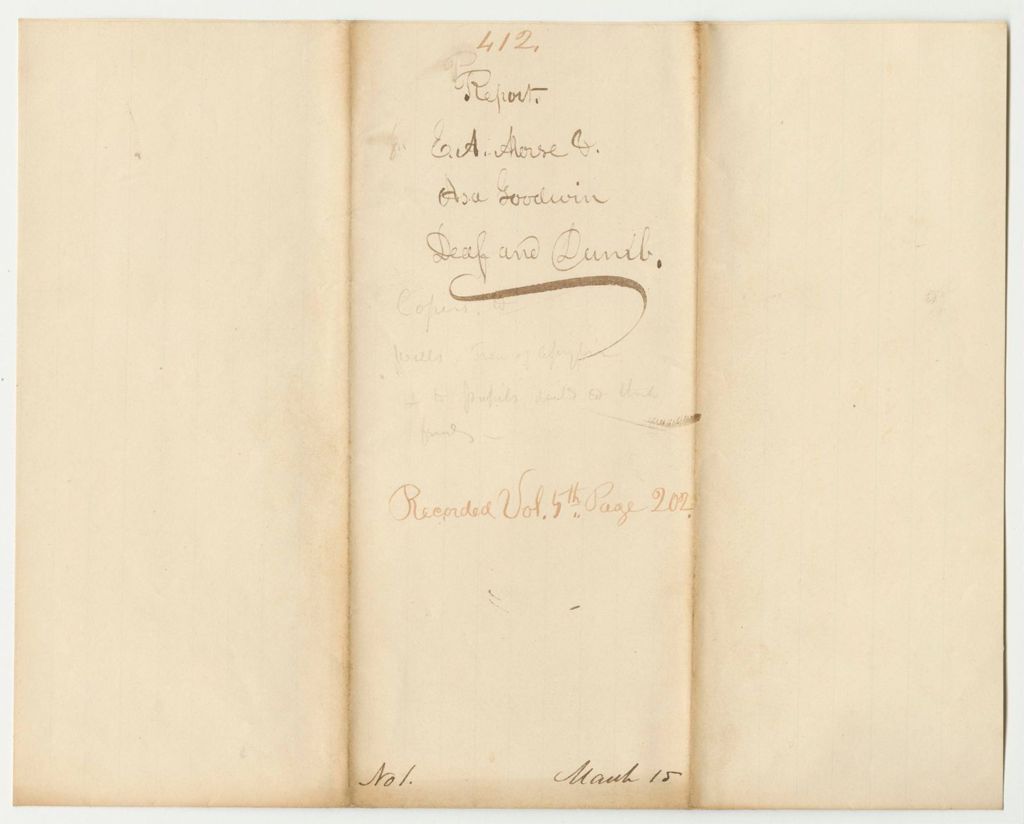 412.
Report.
E. A. Morse &.
Asa Goodwin
Deaf and Dumb.
Copies.
to pupils
Recorded Vol. 5th Page 202.
No 1. March 15